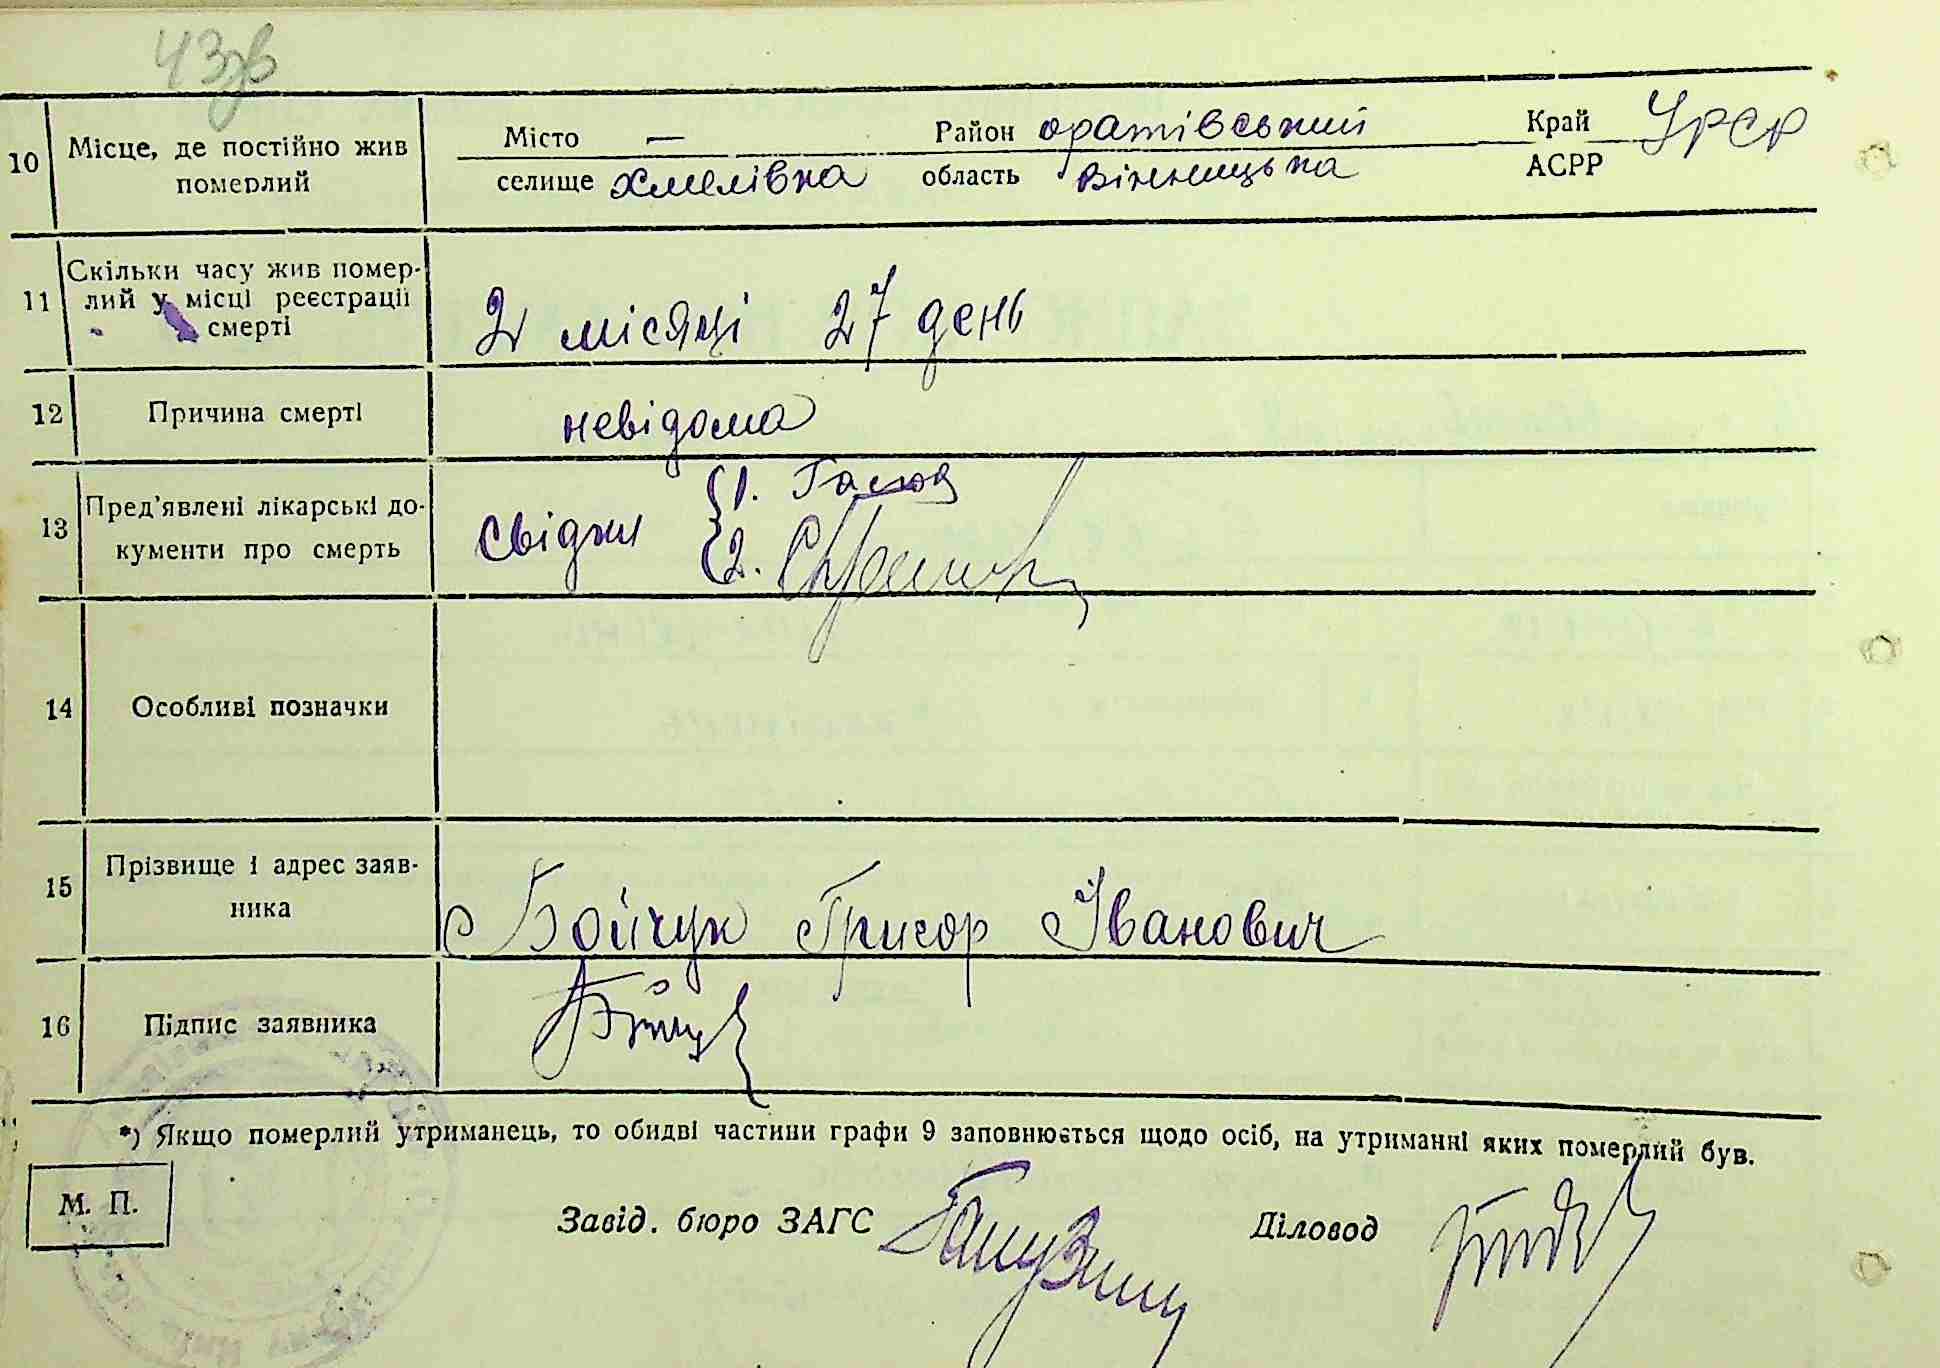 43зв
10 Місце, де постійно жив
померлий
Місто — Район оратівський Край УРСР
селище Хмелівка область Вінницька АСРР
11 Скільки часу жив помер-
лий у місці реєстрації
смерті
2 місяці 27 день
12 Причина смерті невідома
13 Пред'явлені лікарські до-
кументи про смерть
свідки 1.
2.
14 Особливі позначки
15 Прізвище і адрес заяв-
ника
Бойчук Григор Іванович
16 Підпис заявника
*) Якщо померлий утриманець, то обидві частини графи 9 заповнюється щодо осіб, на утриманні яких померлий був.
М. П.
Завід. бюро ЗАГС Діловод